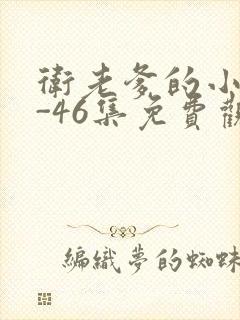 衛老爹的小
-46集免費觀
編織夢的蜘蛛